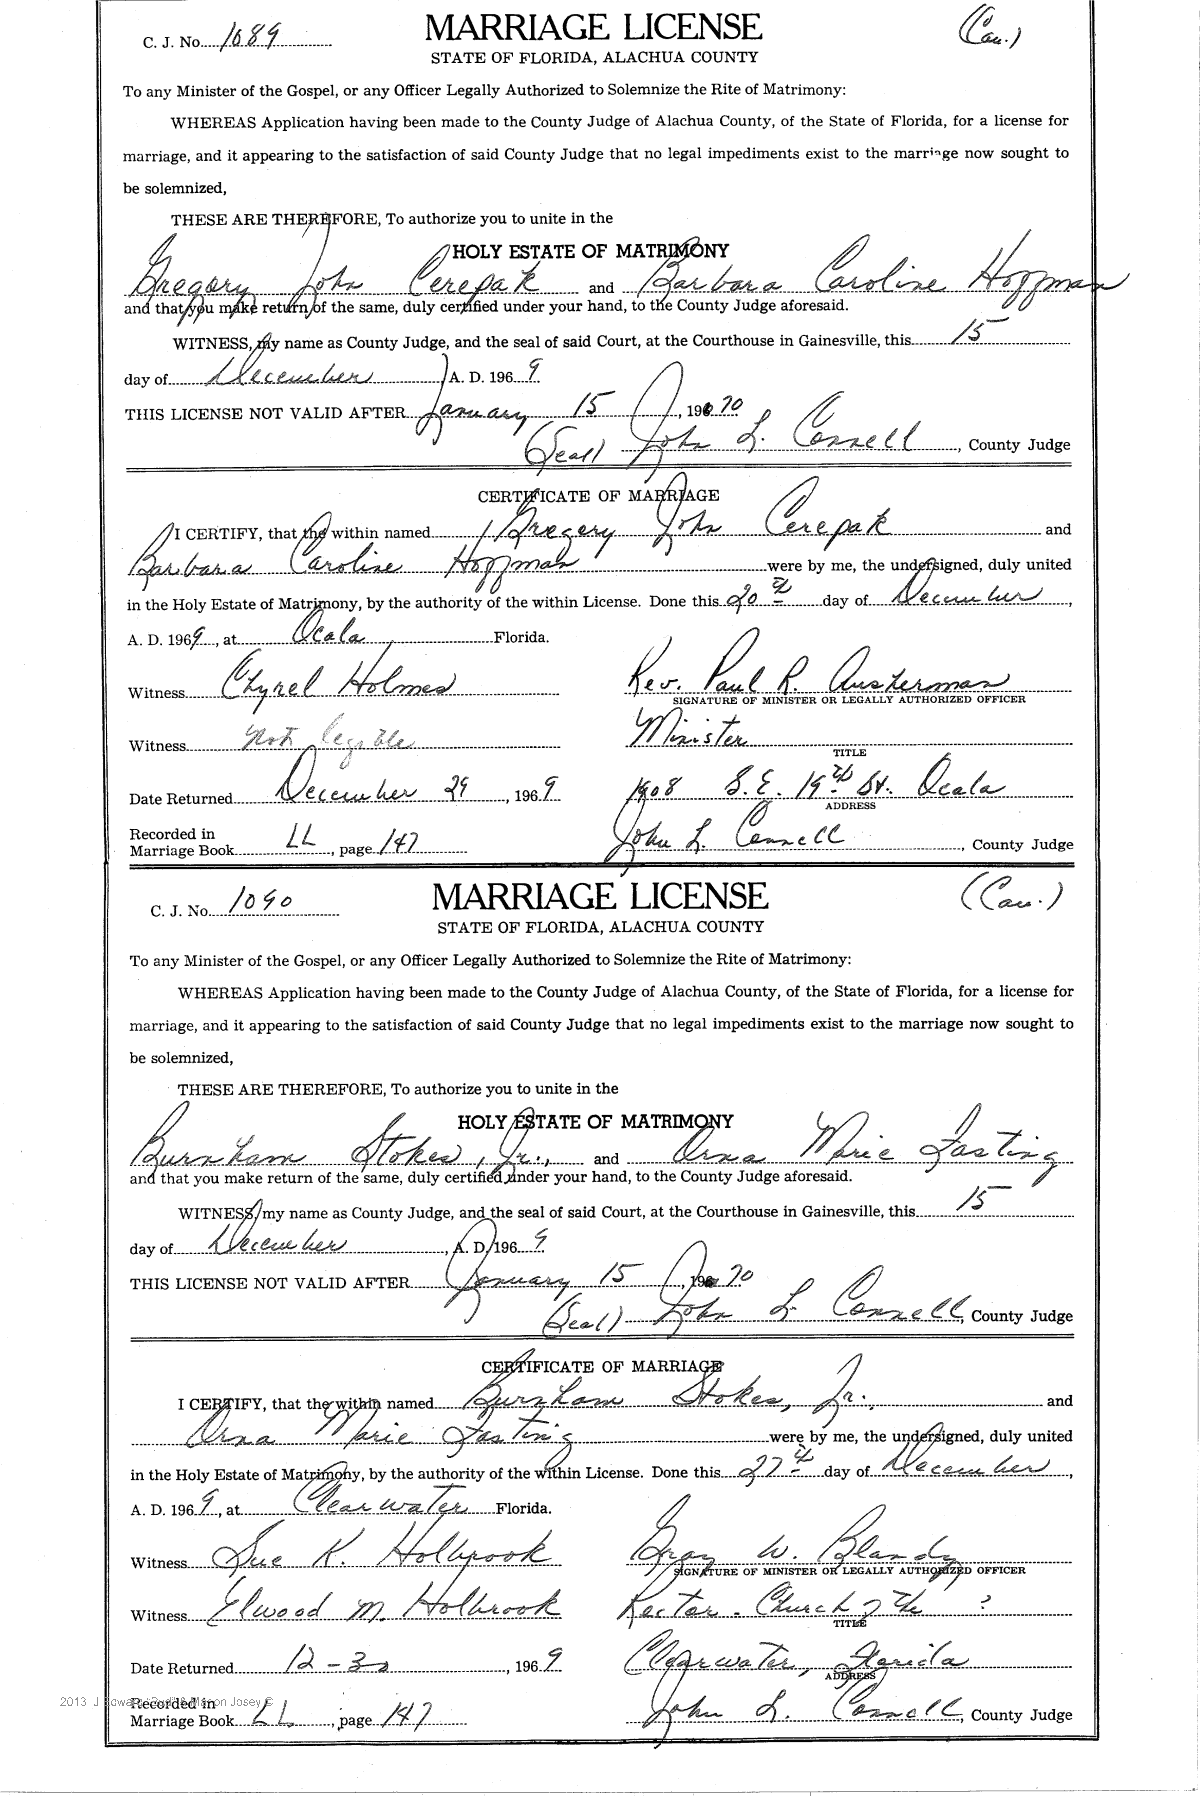 C. J. No. 1089 MARRIAGE LICENSE (Cau.)
STATE OF FLORIDA, ALACHUA COUNTY
To any Minister of the Gospel, or any Officer Legally Authorized to Solemnize the Rite of Matrimony:
WHEREAS Application having been made to the County Judge of Alachua County, of the State of Florida, for a license for
marriage, and it appearing to the satisfaction of said County Judge that no legal impediments exist to the marriage now sought to
be solemnized,
THESE ARE THEREFORE, To authorize you to unite in the
HOLY ESTATE OF MATRIMONY
Gregory John Cerepak and Barbara Caroline Hoffman
and that you make return of the same, duly certified under your hand, to the County Judge aforesaid.
WITNESS, my name as County Judge, and the seal of said Court, at the Courthouse in Gainesville, this 15
day of December A. D. 1969
THIS LICENSE NOT VALID AFTER January 15, 1970
(Seal) John L. Connell, County Judge
CERTIFICATE OF MARRIAGE
I CERTIFY, that the within named Gregory John Cerepak and
Barbara Caroline Hoffman were by me, the undersigned, duly united
in the Holy Estate of Matrimony, by the authority of the within License. Done this 20th day of December,
A. D. 1969, at Ocala, Florida.
Witness Chyrel Holmes Rev. Paul R. Ausherman
SIGNATURE OF MINISTER OR LEGALLY AUTHORIZED OFFICER
Witness Not legible Minister
TITLE
Date Returned December 29, 1969 1908 S.E. 19th St. Ocala
ADDRESS
Recorded in
Marriage Book LL, page 147 John L. Connell, County Judge
C. J. No. 1090 MARRIAGE LICENSE (Cau.)
STATE OF FLORIDA, ALACHUA COUNTY
To any Minister of the Gospel, or any Officer Legally Authorized to Solemnize the Rite of Matrimony:
WHEREAS Application having been made to the County Judge of Alachua County, of the State of Florida, for a license for
marriage, and it appearing to the satisfaction of said County Judge that no legal impediments exist to the marriage now sought to
be solemnized,
THESE ARE THEREFORE, To authorize you to unite in the
HOLY ESTATE OF MATRIMONY
Burnham Stokes, Jr., and Orna Marie Fasting
and that you make return of the same, duly certified under your hand, to the County Judge aforesaid.
WITNESS, my name as County Judge, and the seal of said Court, at the Courthouse in Gainesville, this 15
day of December, A. D. 1969
THIS LICENSE NOT VALID AFTER January 15, 1970
(Seal) John L. Connell, County Judge
CERTIFICATE OF MARRIAGE
I CERTIFY, that the within named Burnham Stokes, Jr., and
Orna Marie Fasting were by me, the undersigned, duly united
in the Holy Estate of Matrimony, by the authority of the within License. Done this 27th day of December,
A. D. 1969, at Clearwater Florida.
Witness Sue K. Holbrook Gray W. Blandy
SIGNATURE OF MINISTER OR LEGALLY AUTHORIZED OFFICER
Witness Elwood M. Holbrook Rector - Church of the ?
TITLE
Date Returned 12-30, 1969 Clearwater, Florida
ADDRESS
2013 J Josey ©
Recorded in
Marriage Book LL, page 147 John L. Connell, County Judge